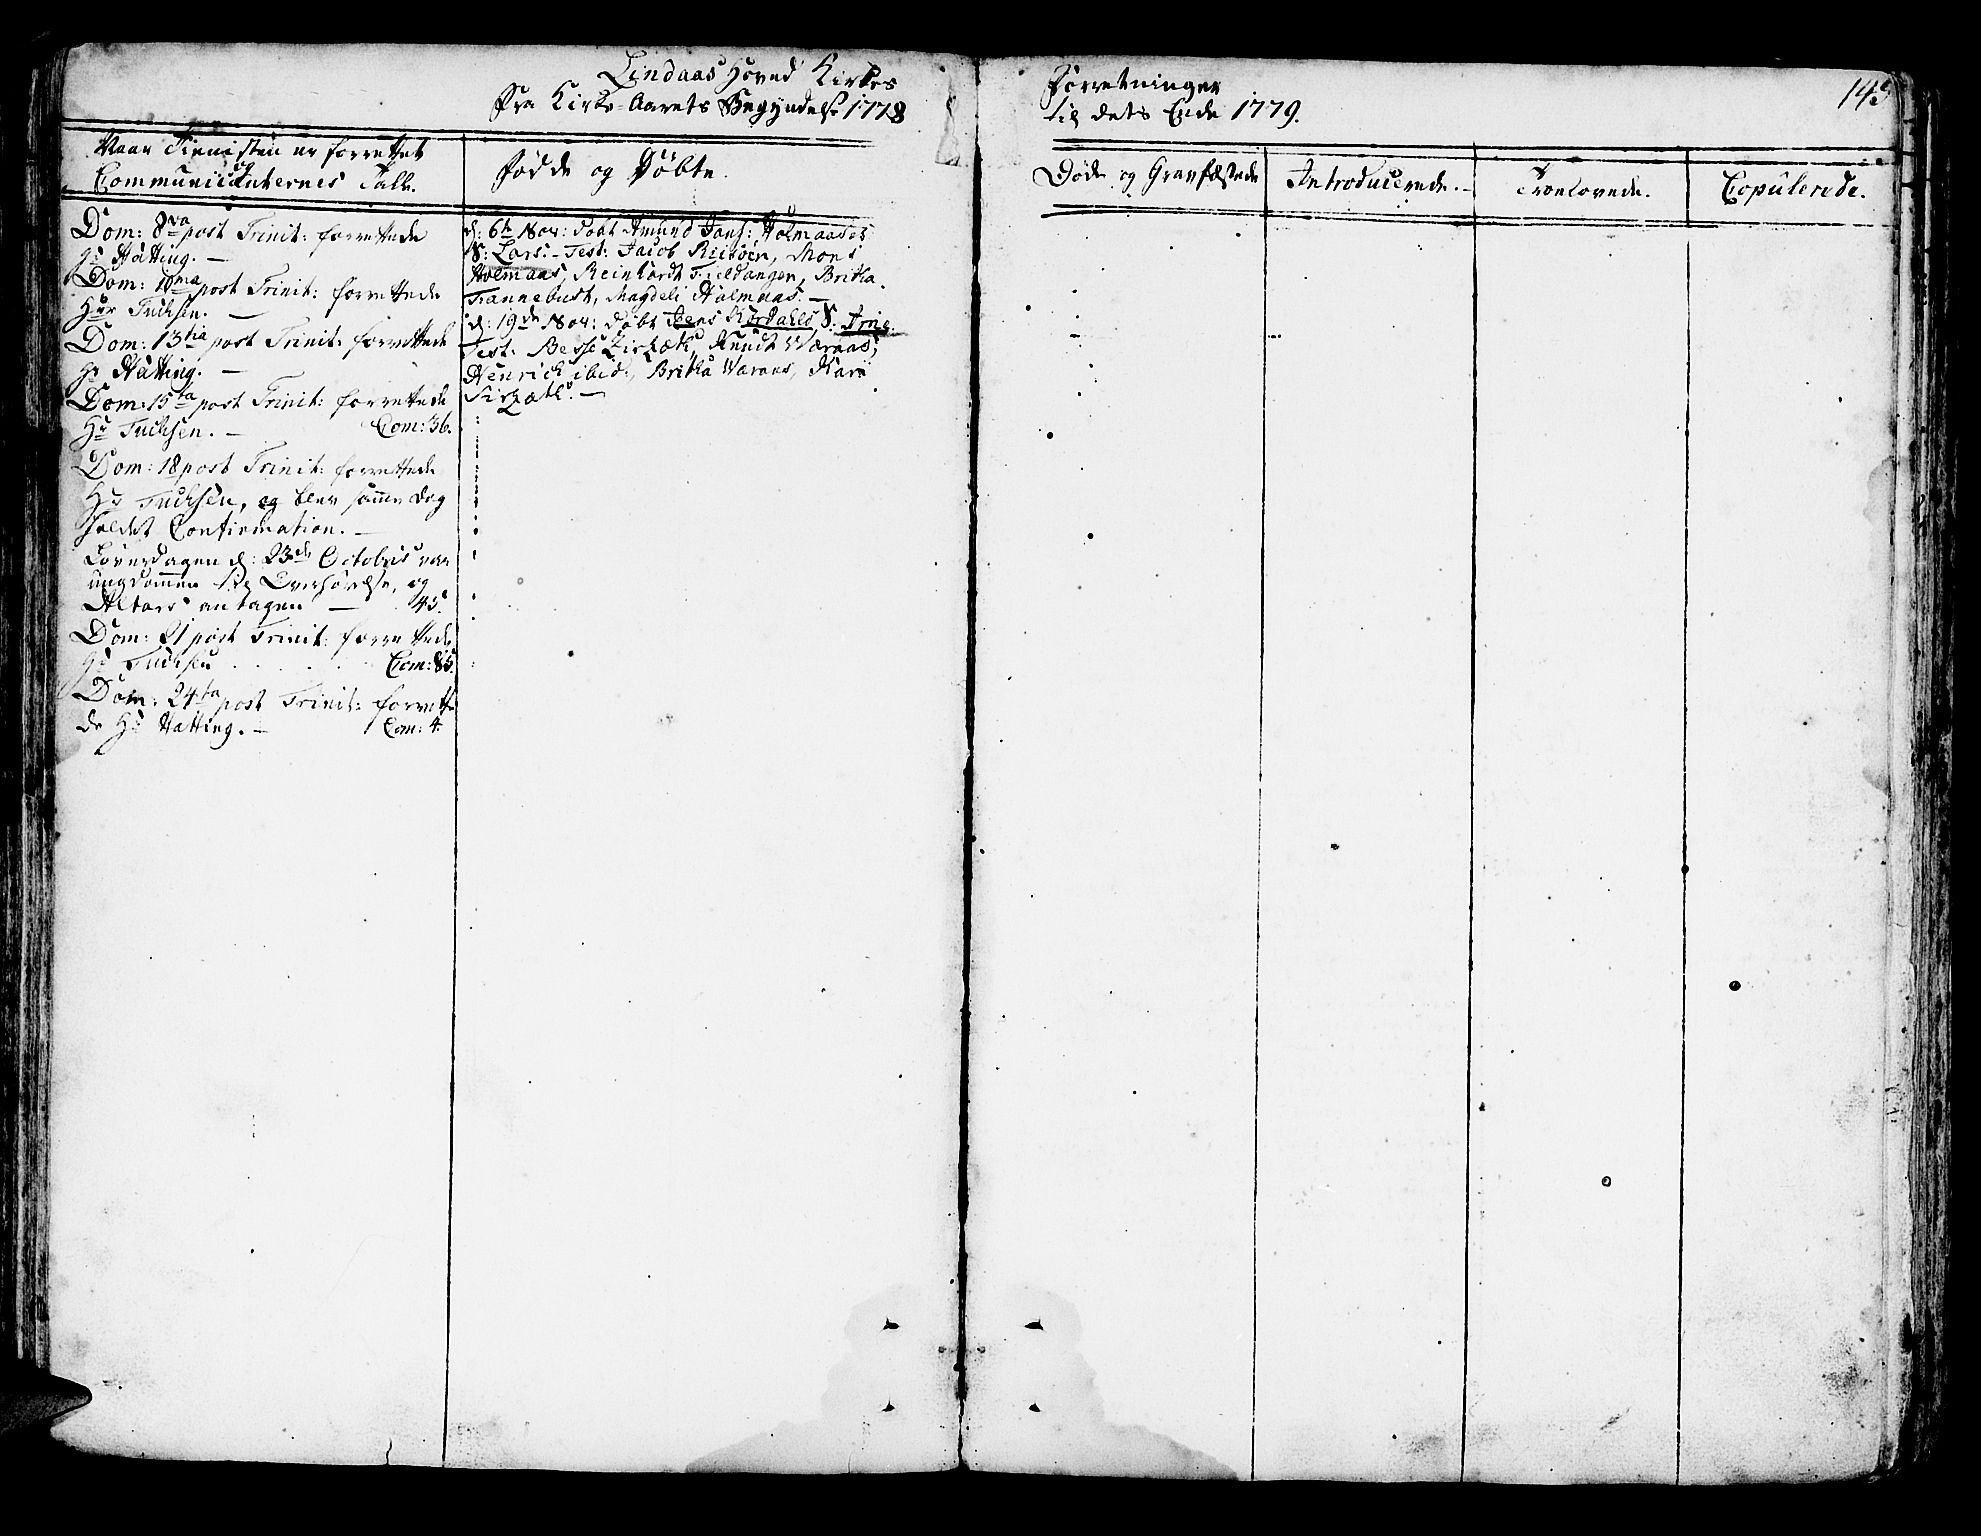 Lindaas Hoved Kirkes
Forretninger
Fra Kirke-Aarets Begyndelse 1778
til dets Ende 1779.
Naar Tienisten er forrettet
Communicanternes Tall.
Fødde og Døbte.
Døde og Gravfæstede
Introducerede.
Troelovede.
Copulerede.
Dom: 8va post Trinit: forrettede
Hr Hatting. —
Dom: 10ma post Trinit: forrettede
Hr Tuchsen. —
Dom: 13tia post Trinit: forrettede
Hr Hatting. —
Dom: 15ta post Trinit: forrettede
Hr Tuchsen. — Com: 36.
Dom: 18 post Trinit: forrettede
Hr Tuchsen, og blev samme Dag
holdet Confirmation. —
Løverdagen d: 23de Octobris var
ungdommen til Overhørelse, og
Altars antagen — 45.
Dom: 21 post Trinit: forrettede
Hr Tuchsen . . . . Com: 85.
Dom: 24ta post Trinit: forrette
de Hr Hatting. — Com: 4.
d: 6te Nov: døbt Amund Jans: Holmaases
S: Lars. — Test: Jacob Mons
Holmaas, Reinhardt Fieldanger, Britha
Tannebust, Magdeli Holmaas. —
d: 19de Nov: døbt Jens Kordahls S:
Test: Knudt Waraas,
Henrich ibid:, Britha Waraas, Kari